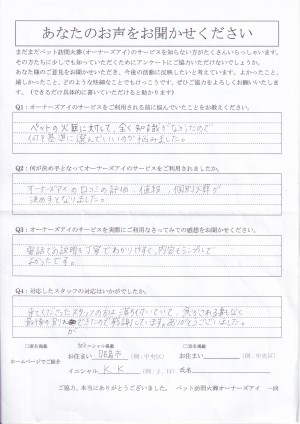 あなたのお声をお聞かせください
まだまだペット訪問火葬(オーナーズアイ)のサービスを知らない方がたくさんいらっしゃいます。
その方たちに少しでも知っていただくためにアンケートにご協力いただけないでしょうか。
あなた様のご意見をお聞かせいただき、今後の活動に反映したいと考えています。よかったこと、
嬉しかったこと、どのような些細なことでもけっこうです。ぜひご協力をよろしくお願いいたしま
す。(できるだけ具体的に書いていただけると助かります)
Q1：オーナーズアイのサービスをご利用される前に悩んでいたことをお教えください。
ペットの火葬に対して、全く知識がなかったので
何を基準に選んでいいのか悩みました。
Q2：何が決め手となってオーナーズアイのサービスをご利用されましたか。
オーナーズアイの口コミの評価、値段、個別火葬が
決め手となりました。
Q3：オーナーズアイのサービスを実際にご利用なさってみての感想をお聞かせください。
電話での説明も丁寧でわかりやすく、内容もシンプルで
よかったです。
Q4：対応したスタッフの対応はいかがでしたか。
来てくださったスタッフの方は落ち付いていて、
最後のお別れができたので感謝しています。ありがとうございました。
ホームページでご紹介
お住まい
(例：中央区)
イニシャル K.K (例：Z.H)
お住まい
(例：中央区)
氏名
ご協力、本当にありがとうございました。 ペット訪問火葬オーナーズアイ 一同